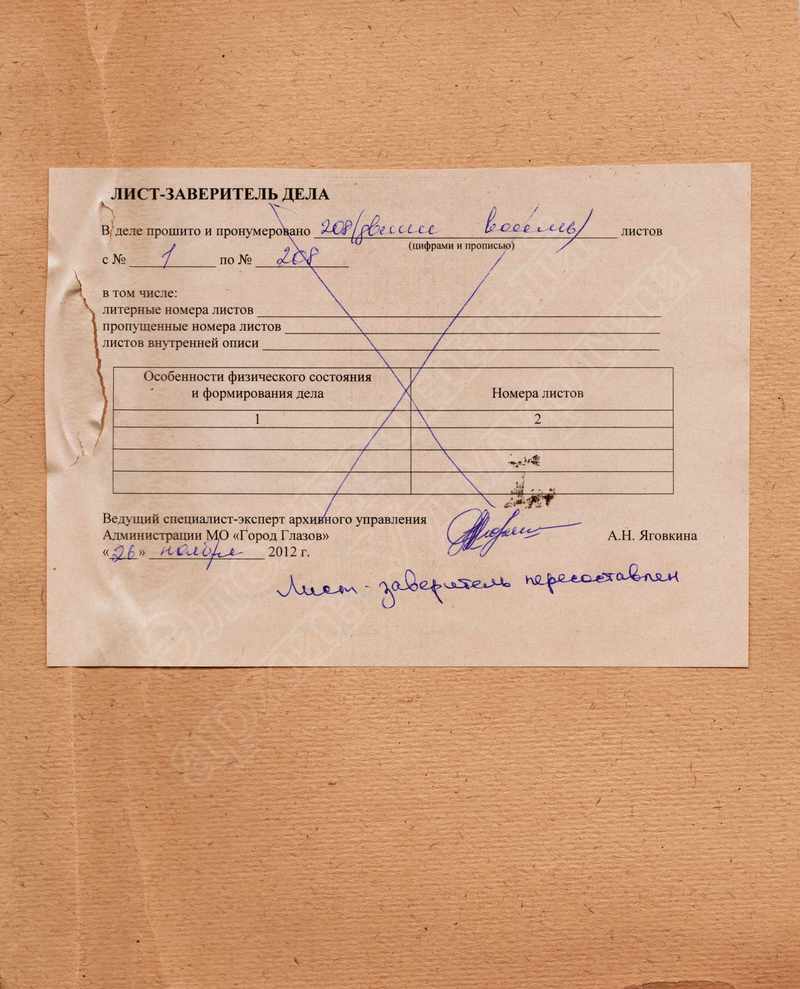 ЛИСТ-ЗАВЕРИТЕЛЬ ДЕЛА
В деле прошито и пронумеровано 208 (двести восемь) листов
(цифрами и прописью)
с № 1 по № 208
в том числе:
литерные номера листов
пропущенные номера листов
листов внутренней описи
Особенности физического состояния
и формирования дела
Номера листов
1 2
Ведущий специалист-эксперт архивного управления
Администрации МО «Город Глазов» А.Н. Яговкина
«26» ноября 2012 г.
Лист-заверитель пересоставлен